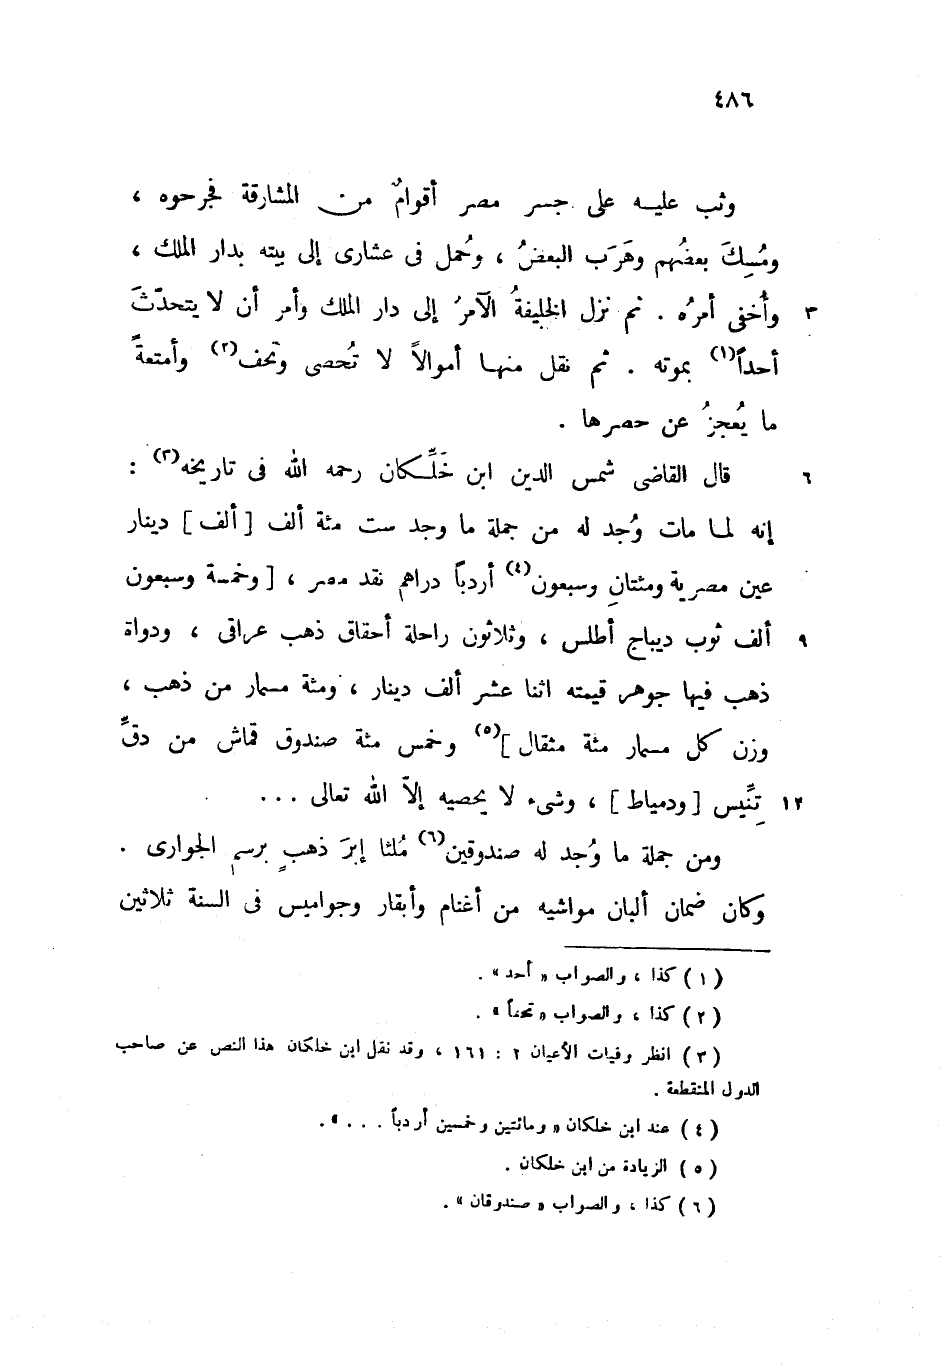 ٤٨٦
وثب عليه على جسر مصر أقوامٌ من المشارقة فجرحوه ،
ومُسِكَ بعضُهم وهَرَب البعضُ ، وحُمل فى عشارى إلى بيته بدار الملك ،
٣ وأُخفى أمرُه . ثم نزل الخليفةُ الآمرُ إلى دار الملك وأمر أن لا يتحدّثَ
أحداً(١) بموته . ثم نقل منها أموالاً لا تُحصى وتحف(٢) وأمتعةً
ما يُعجزُ عن حصرها .
٦ قال القاضى شمس الدين ابن خَلِّكان رحمه الله فى تاريخه(٣) :
إنه لما مات وُجد له من جملة ما وجد ست مئة ألف [ ألف ] دينار
عين مصرية ومئتانِ وسبعون(٤) أردباً دراهم نقد مصر ، [ وخمسة وسبعون
٩ ألف ثوب ديباج أطلس ، وثلاثون راحلة أحقاق ذهب عراقى ، ودواة
ذهب فيها جوهر قيمته اثنا عشر ألف دينار ، ومئة مسمار من ذهب ،
وزن كل مسمار مئة مثقال ](٥) وخمس مئة صندوق قماش من دقِّ
١٢ تِنِّيس [ ودمياط ] ، وشىء لا يحصيه إلاّ الله تعالى ...
ومن جملة ما وُجد له صندوقين(٦) مُلئا إبرَ ذهبٍ برسم الجوارى .
وكان ضمان ألبان مواشيه من أغنام وأبقار وجواميس فى السنة ثلاثين
( ١ ) كذا ، والصواب « أحد » .
( ٢ ) كذا ، والصواب « تحفاً » .
( ٣ ) انظر وفيات الأعيان ٢ : ١٦١ ، وقد نقل ابن خلكان هذا النص عن صاحب
الدول المنقطعة .
( ٤ ) عند ابن خلكان « ومائتين وخمسين أردباً . . . » .
( ٥ ) الزيادة من ابن خلكان .
( ٦ ) كذا ، والصواب « صندوقان » .